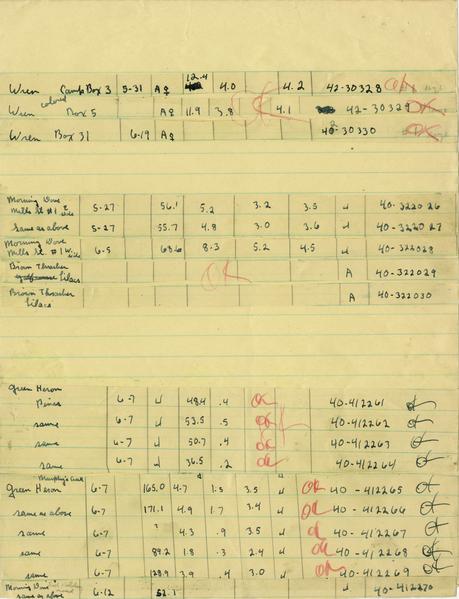 12.4
Wren Camp Box 3 5-31 A♀ 4.0 4.2 42-30328 OK
colored
Wren Box 5 A♀ 11.9 3.8 4.1 42-30329 OK
Wren Box 31 6-19 A♀ 40-30330 OK
Morning Dove
Mills St. #1 E side 5-27 56.1 5.2 3.2 3.5 d 40-322026
same as above 5-27 55.7 4.8 3.0 3.6 d 40-322027
Morning Dove
Mills St. #1 W. side 6-5 63.6 8.3 5.2 4.5 d 40-322028
Brown Thrasher
Lilacs OK A 40-322029
Brown Thrasher
Lilacs A 40-322030
Green Heron
Pines 6-7 d 48.4 .4 OK 40-412261 OK
same 6-7 d 53.5 .5 OK 40-412262 OK
same 6-7 d 50.7 .4 OK 40-412263 OK
same 6-7 d 36.5 .2 OK 40-412264 OK
Murphy's Creek
Green Heron 6-7 165.0 4.7 1.5 3.5 d OK 40-412265 OK
same as above 6-7 171.1 4.9 1.7 3.4 d OK 40-412266 OK
same 6-7 ? 4.3 .9 3.5 d OK 40-412267 OK
same 6-7 89.2 1.8 .3 2.4 d OK 40-412268 OK
same 6-7 128.9 3.9 .4 3.0 d OK 40-412269 OK
Morning Dove
same as above 6-12 52.1 d 40-412270